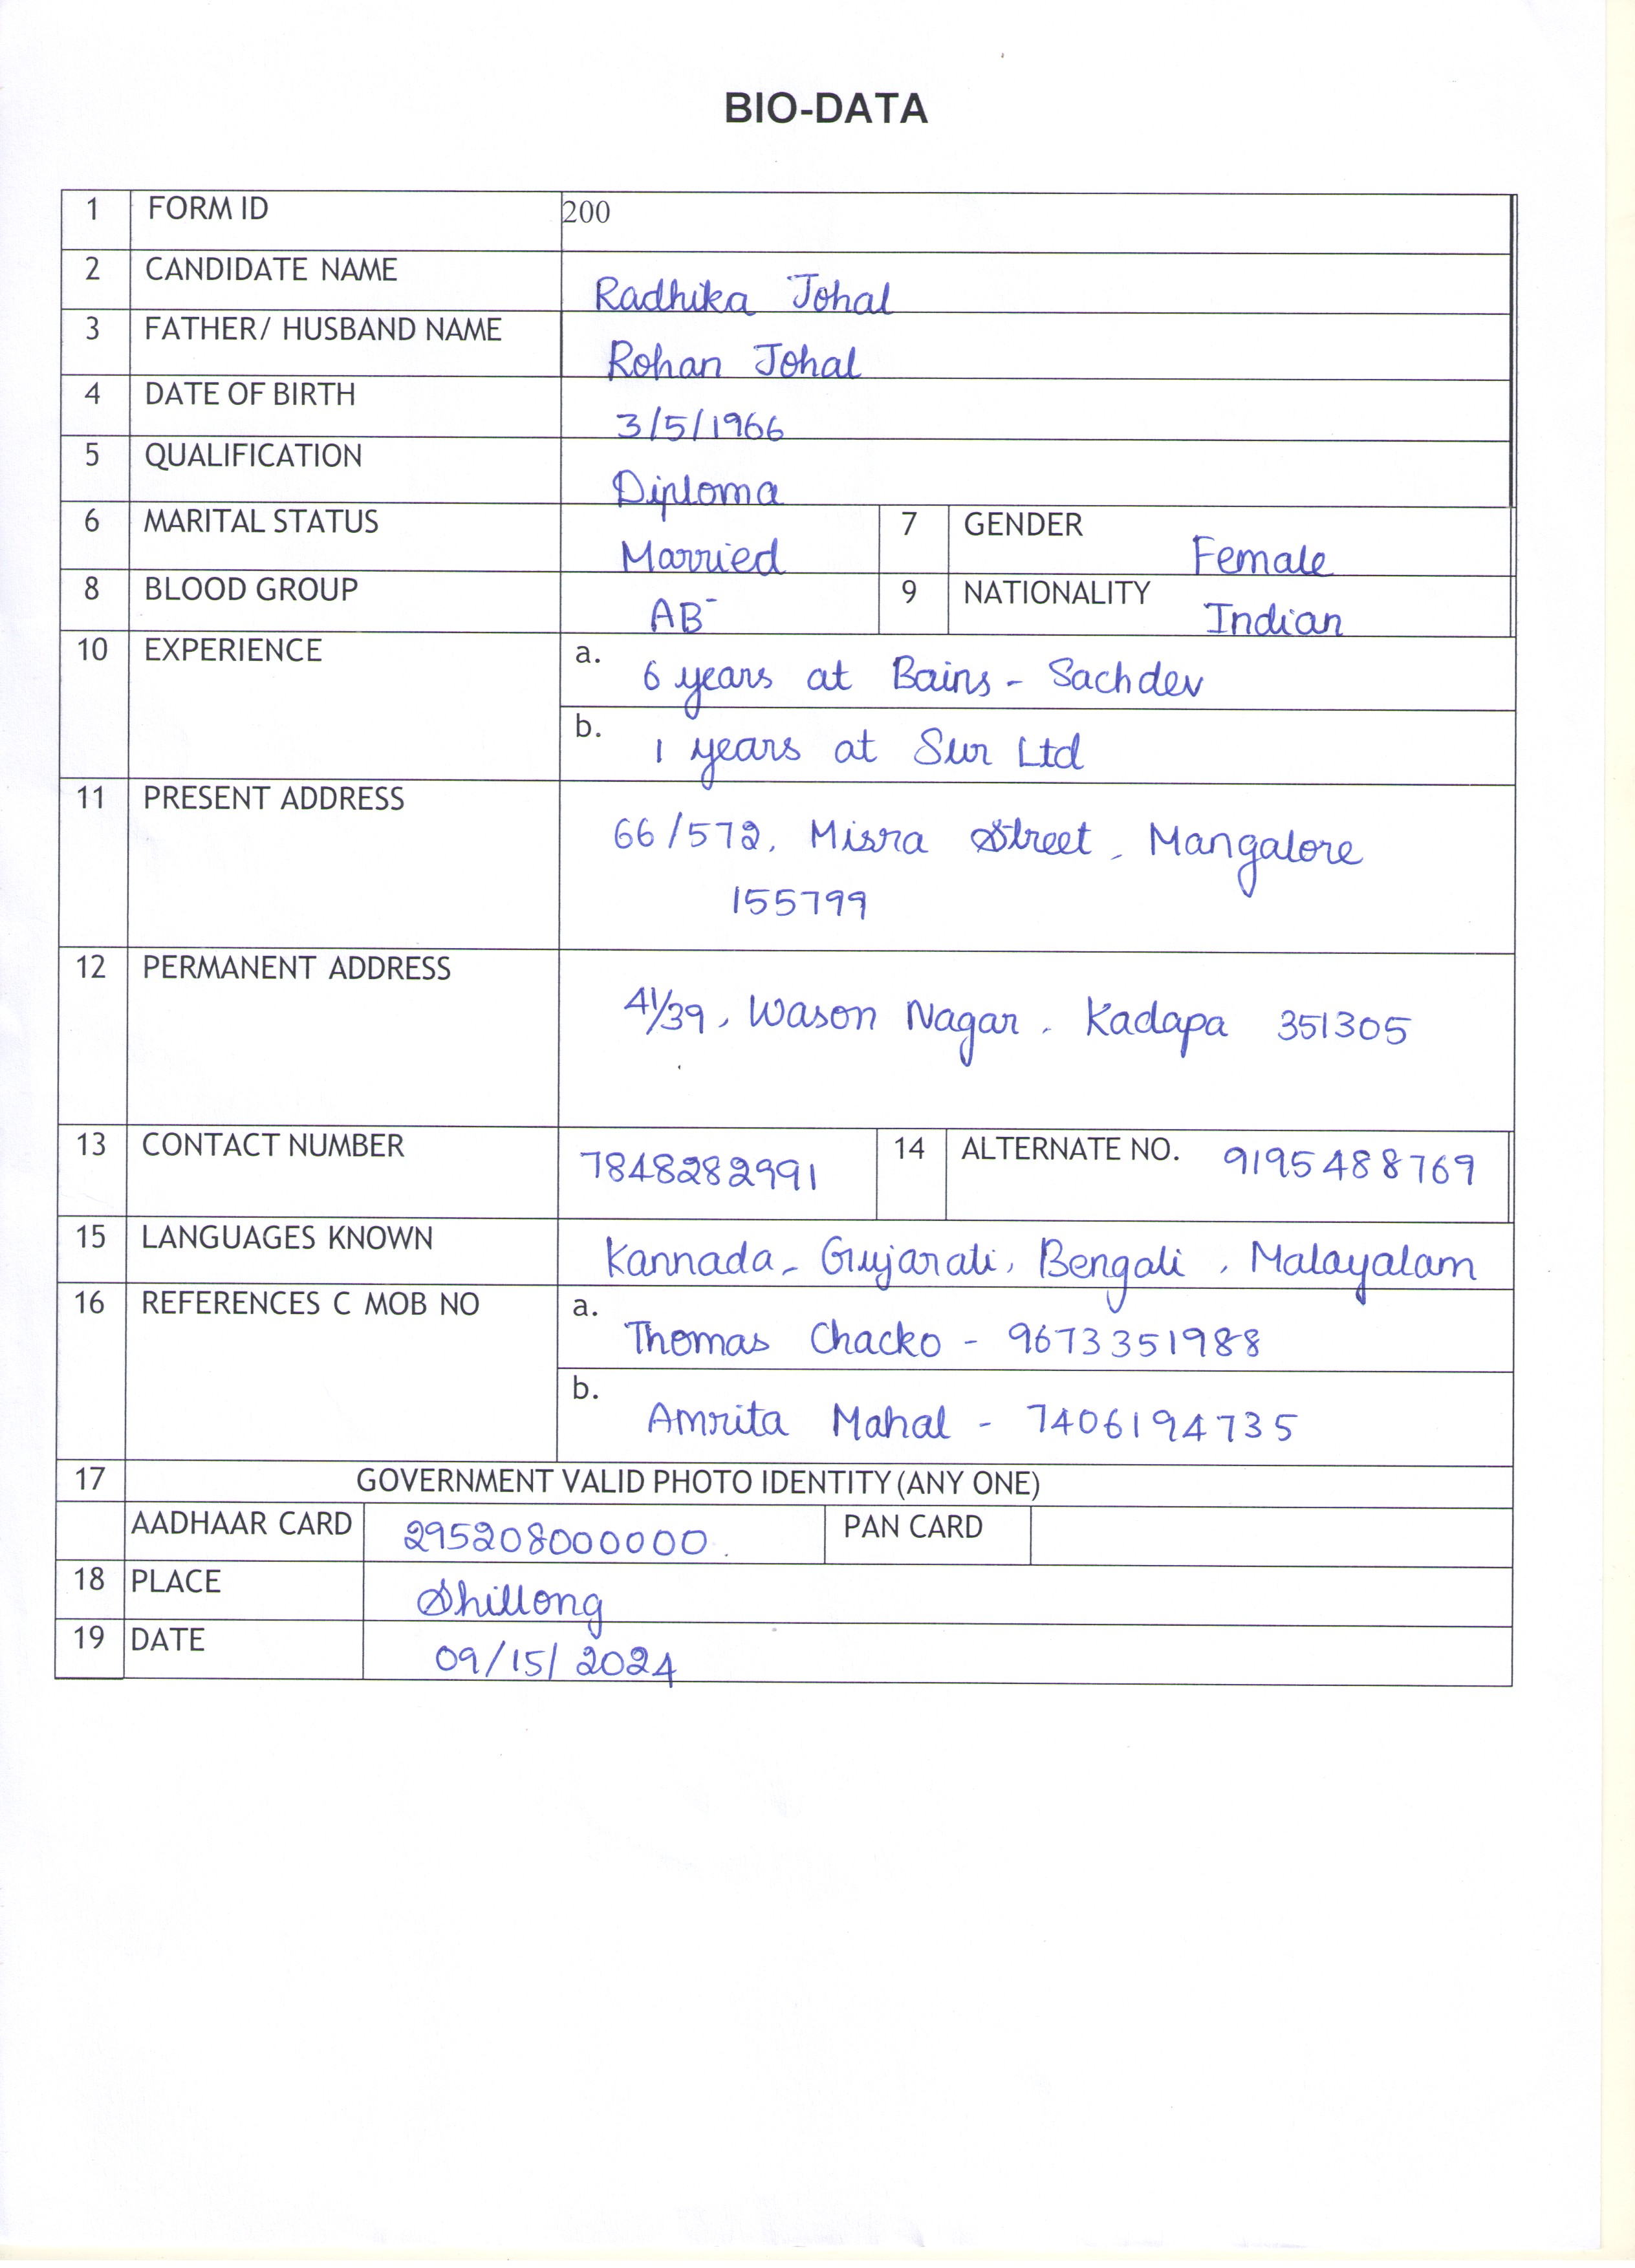 BIO-DATA
1 FORM ID 200
2 CANDIDATE NAME Radhika Johal
3 FATHER/ HUSBAND NAME Rohan Johal
4 DATE OF BIRTH 3/5/1966
5 QUALIFICATION Diploma
6 MARITAL STATUS Married 7 GENDER Female
8 BLOOD GROUP AB- 9 NATIONALITY Indian
10 EXPERIENCE a. 6 years at Bains - Sachdev
b. 1 years at Sur Ltd
11 PRESENT ADDRESS 66/572, Misra Street, Mangalore
155799
12 PERMANENT ADDRESS 41/39, Wason Nagar, Kadapa 351305
13 CONTACT NUMBER 7848282991 14 ALTERNATE NO. 9195488769
15 LANGUAGES KNOWN Kannada, Gujarati, Bengali, Malayalam
16 REFERENCES C MOB NO a. Thomas Chacko - 9673351988
b. Amrita Mahal - 7406194735
17 GOVERNMENT VALID PHOTO IDENTITY (ANY ONE)
AADHAAR CARD 295208000000. PAN CARD
18 PLACE Shillong
19 DATE 09/15/2024